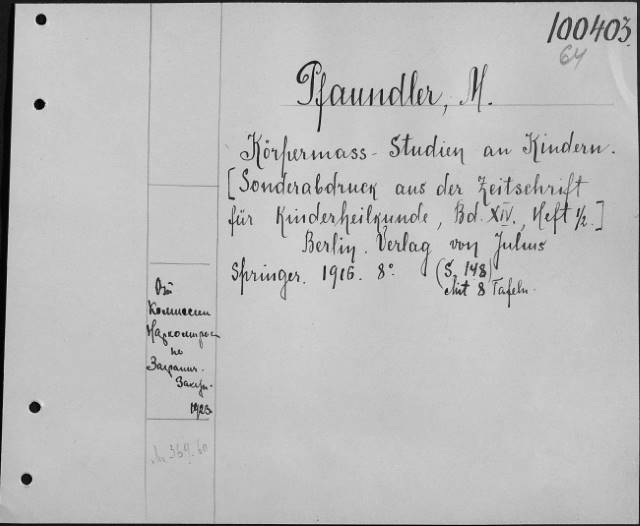 100403
64
Pfaundler, M.
Körpermass-Studien an Kindern.
[Sonderabdruck aus der Zeitschrift
für Kinderheilkunde, Bd. XIV., Heft 1/2.]
Berlin. Verlag von Julius
Springer. 1916. 8°. (S. 148)
Mit 8 Tafeln.
От
Комиссии
Наркомпроса
по
Загранич.
Закуп.
1923